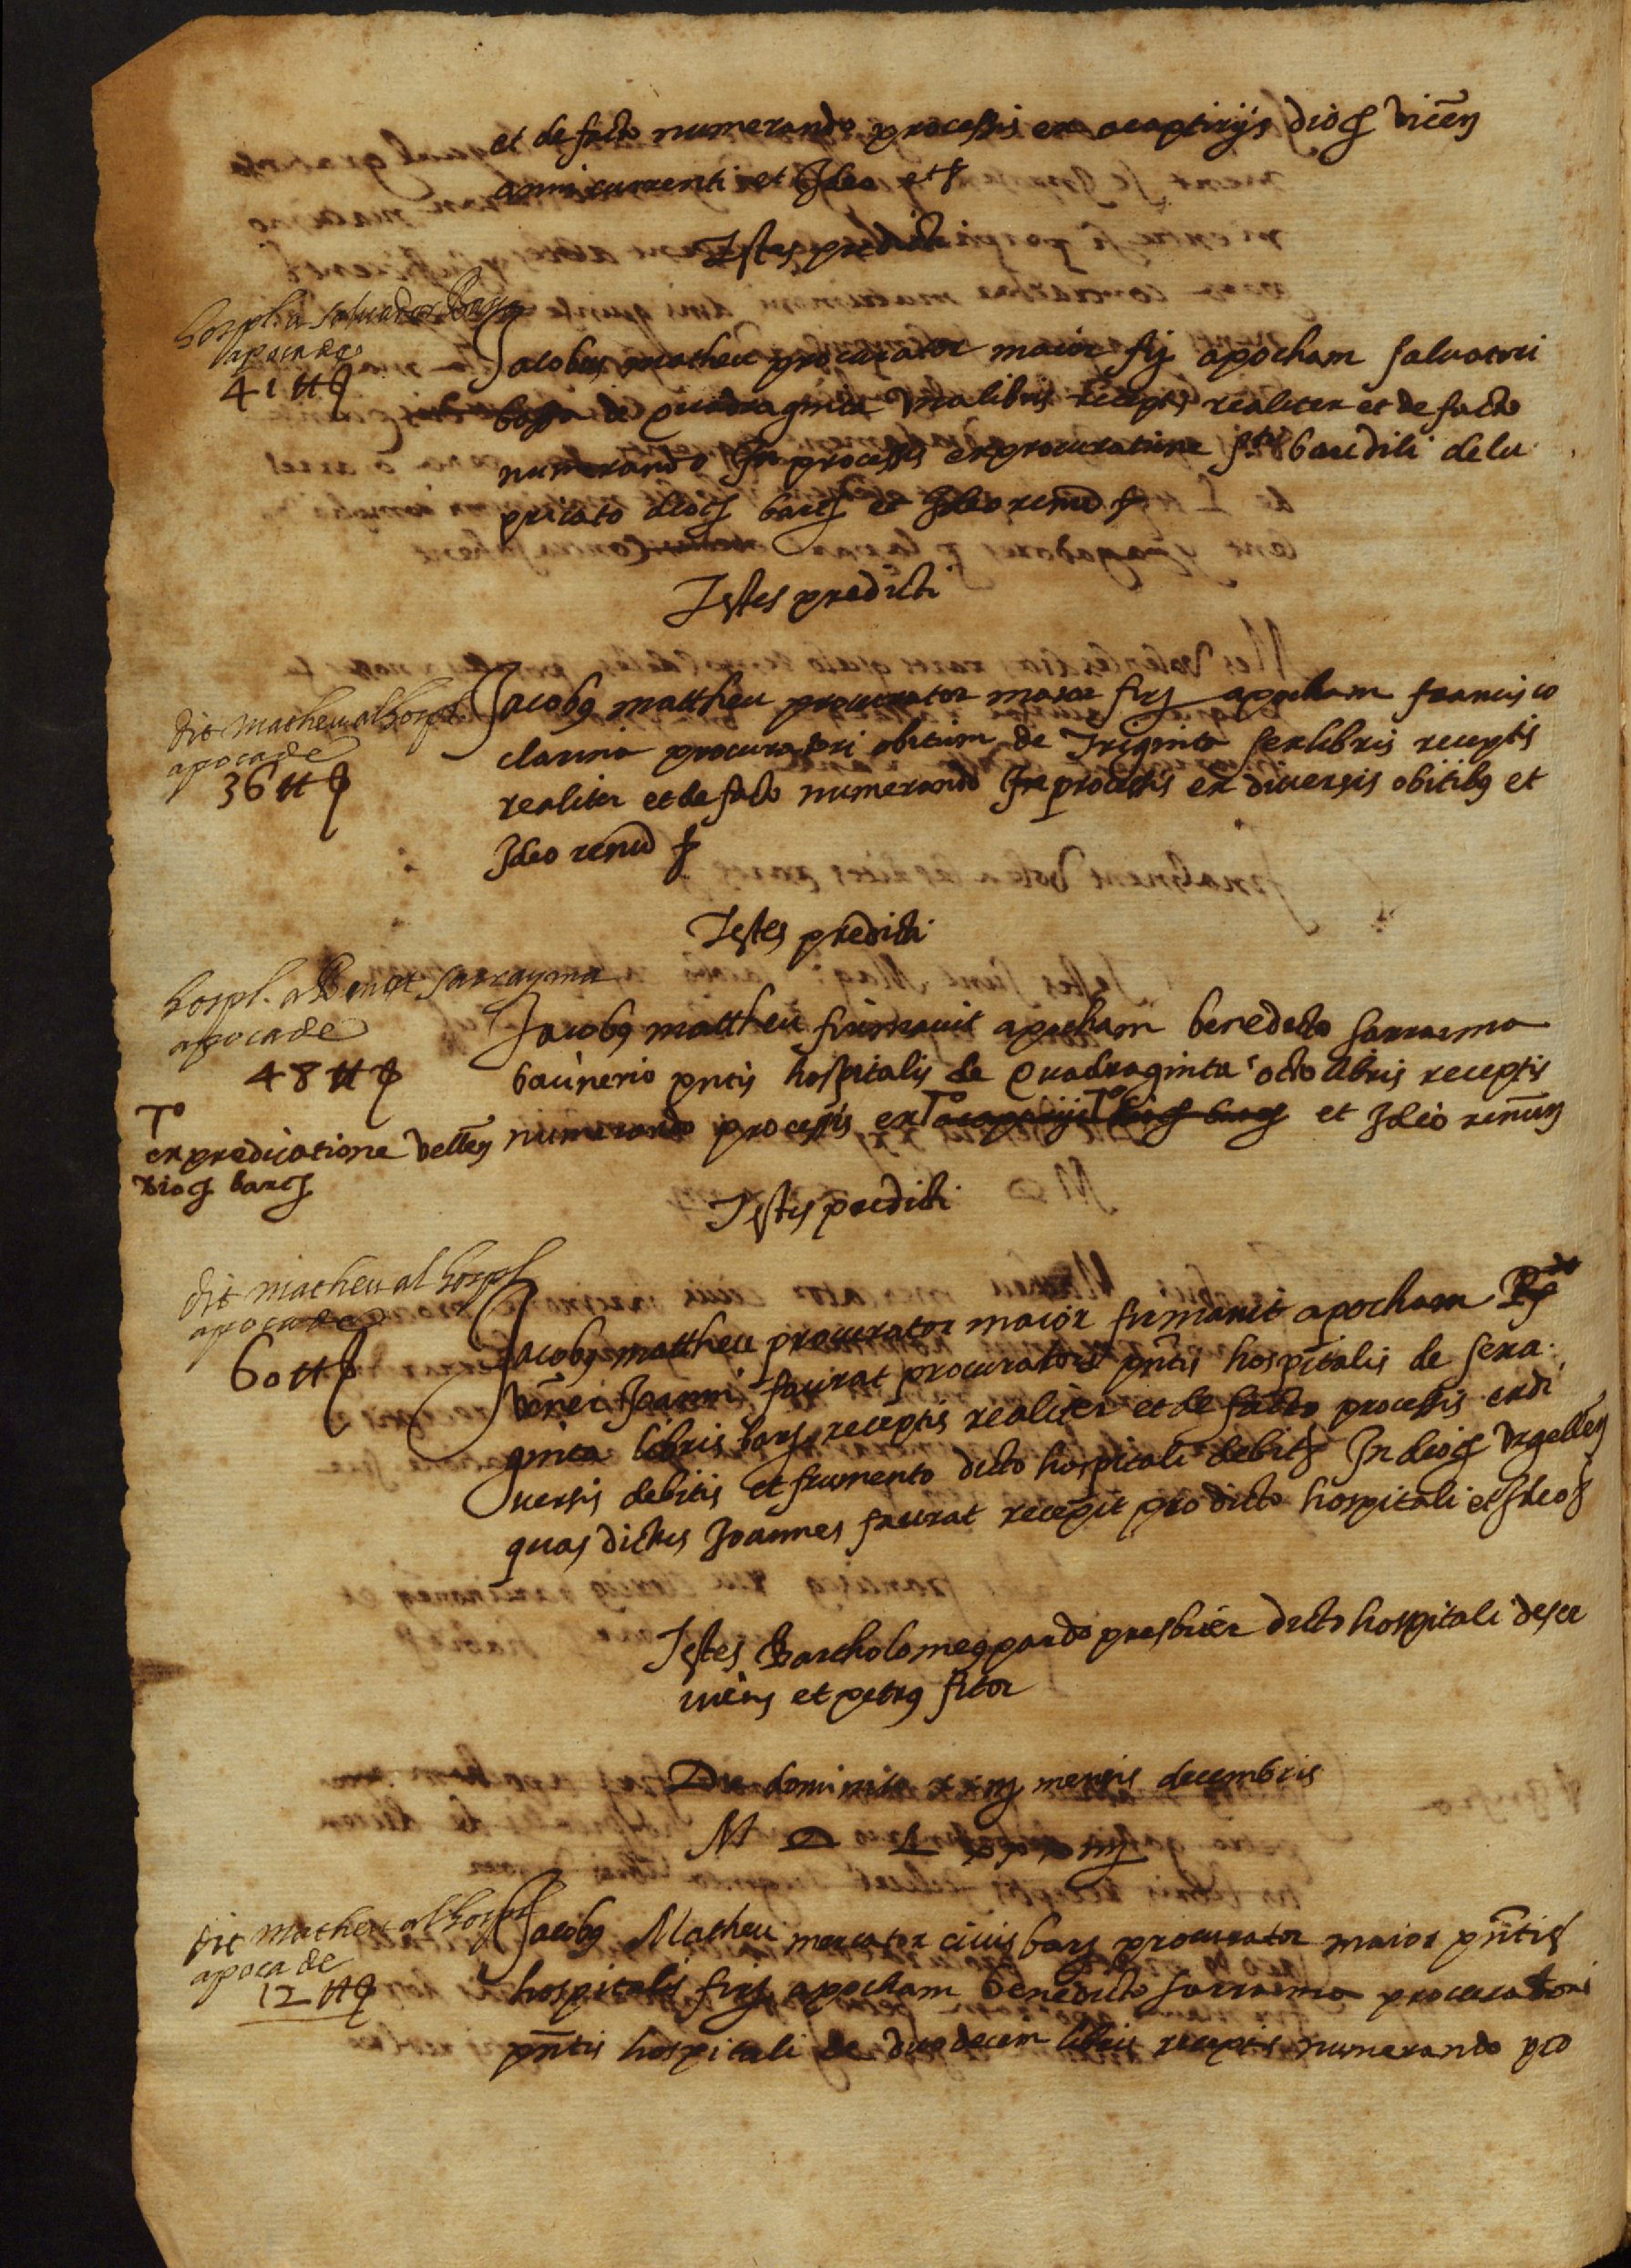 et de facto numerando processis ex acaptirijs dioc̃ vicen̄
anni currenti et Ideo etc
Testes predicti
hospl. a saluador Bossa
apoca de
41 ℔
Jacobus matheu procurator maior fir apocham saluatori
bossa de quadraginta vna libris receptis realiter et de facto
numerando In processis ex procuratione sti baudilii de lu
pricato dioc̃ barc̃ et Ideo renu̅
Testes predicti
dit matheu al hospl
apoca de
36 ℔
Jacobus mattheu procurator maior fir apocham francisco
clarina procuratori obitum de Triginta sex libris receptis
realiter et de facto numerando In processis ex diuersis obitibus et
Ideo renu̅
Testes predicti
hospl. a Benet sarrayma
apoca de
48 ℔
Jacobus mattheu firmauit apocham benedicto sarraima
bainerio pn̄tis hospitalis de Quadraginta octo libris receptis
numerando processis ex acaptirijs dioc̃ barc̃ et Ideo renu̅n
To
ex predicatione dellen̄
dioc̃ barc̃
Testes predicti
dit matheu al hospl
apoca de
60 ℔
Jacobus mattheu procurator maior firmauit apocham Rdo
vēneri Joanni faurat procuratori pn̄tis hospitalis de sexa
ginta libris barc̃ receptis realiter et de facto processis ex di
uersis debitis et frumento dicto hospitali debitis In dioc̃ vrgellen̄
quas dictus Joannes faurat recepit pro dicto hospitali et Ideo
Testes Bartholomeus pardo presbiter dicto hospitali deser
uiens et petrus fitor
Die dominico xxiij mensis decembris
M D L xxxiiij
dit matheu al hospl
apoca de
12 ℔
Jacobus Matheu mercator ciuis barc̃ procurator maior pn̄tis
hospitalis fir apocham benedicto sarraima procuratori
pn̄tis hospitali de duodecem libris receptis numerando pro